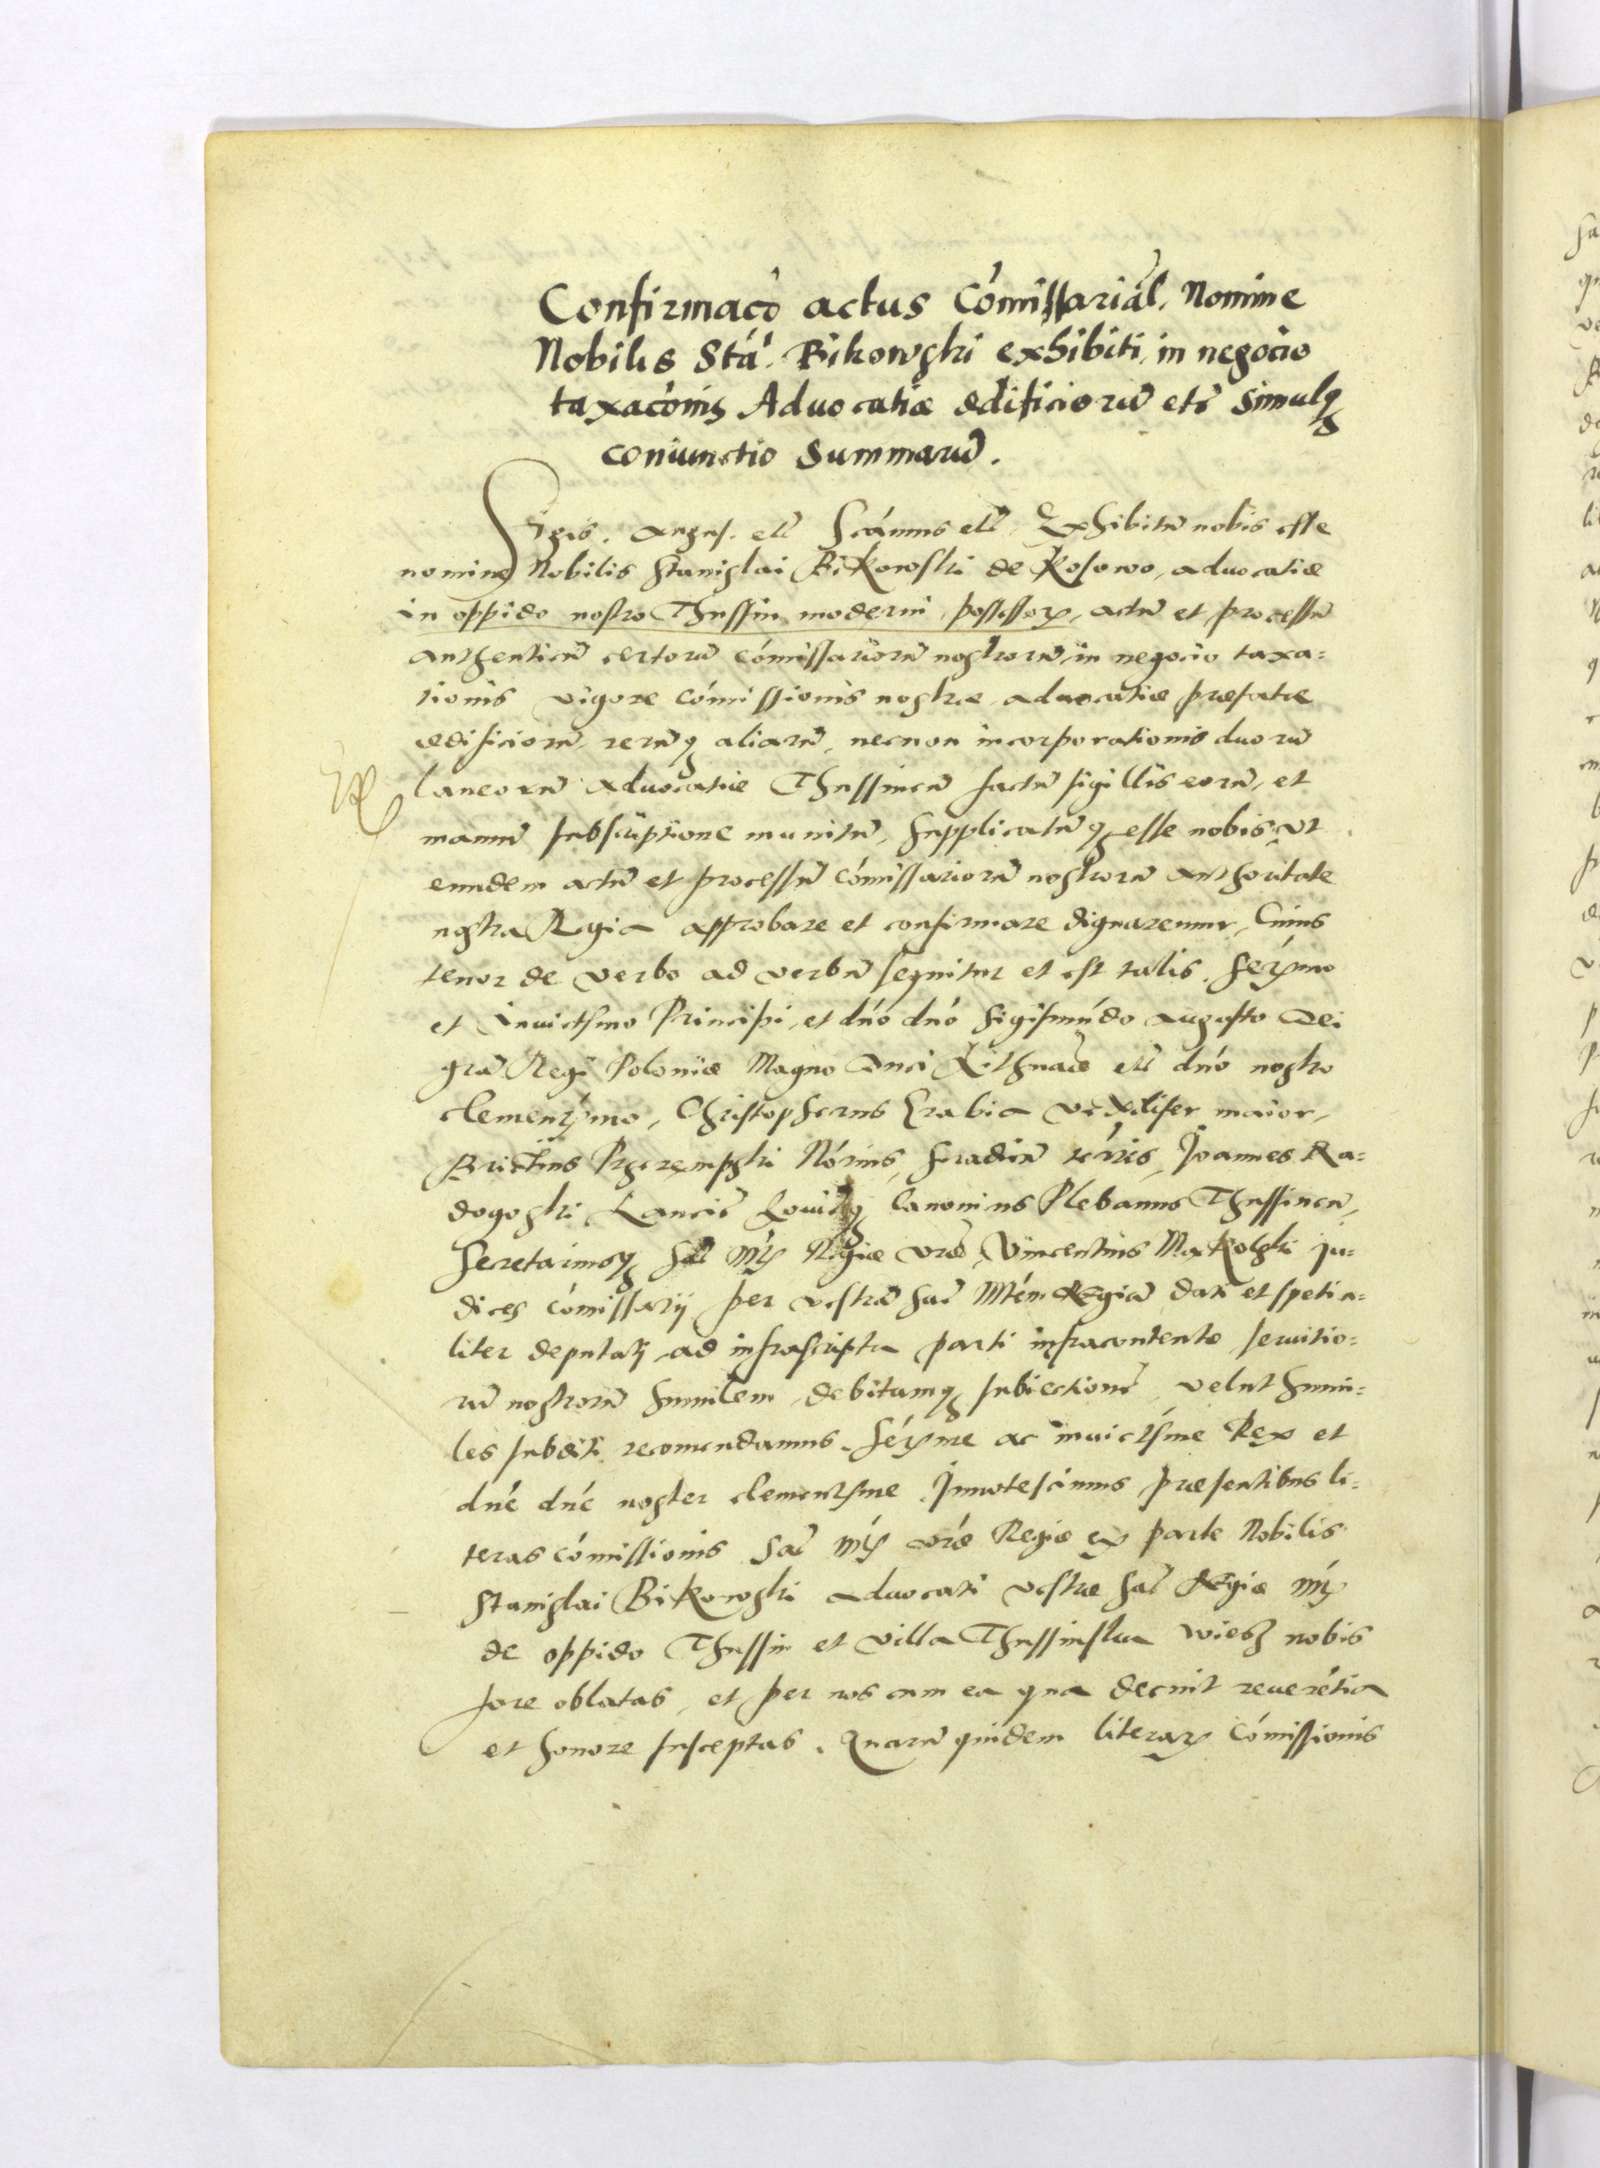 Confirmacō actus Cómissariál. Nomine
Nobilis Stá. Bikowski exhibiti, in negocio
taxacónis Advocatiæ ædificiorū etc̄ simulq
coniunctio summarū.
Sigis. Augus. etc̄ Scámus etc̄ Exhibitū nobis esse
nomine Nobilis Stanislai Bikowski de Rosowo, advocatiæ
in oppido nostro Thussin moderni possessoris, actū et processū
authenticū certorū cómissariorū nostrorū in negocio taxa=
tionis vigore cómissionis nostræ advocatiæ præfatæ
ædificiorū, rerūq aliarū, necnon incorporationis duorū
laneorū advocatiæ Thussincn̄ factū sigillis eorū, et
manuū subscriptione munitū, supplicatūq esse nobis, ut
eundem actū et processū cómissariorū nostrorū authoritate
nostra Regia approbare et confirmare dignaremur, Cuius
tenor de verbo ad verbū sequitur et est talis. Seŕmo
et Invictsmo Principi, et dńo dńo Sigismúdo Augusto Dei
gr̄a Regi Poloniæ Magno Duci Lithuaæ etc̄ dńo nostro
clementsmo, Christopherus Grabia vexilifer maior,
Brictius Przerempski Nótrius, Siradień rēris, Joannes Ra=
dogoski Lancic̄ Lovicq Canonicus Plebanus Thussincn̄,
Secretariusq Sac̄ Mtis Regiæ vræ, Vincentius Makolski ju=
dices cómissarij per vestrā sac̄ Mtém Regiā dati et spetia=
liter deputati, ad infrascripta parti infracontenta servitio=
rū nostrorū humilem debitamq subiectionē, velut humi=
les subditi recomendamus. Seŕme ac invictsme Rex et
dńe dńe noster clementsme Innotescimus præsentibus li=
teras cómissionis Sac̄ Mtis vræ Regiæ ex parte Nobilis
Stanislai Bikowski advocati vestræ Sac̄ Regiæ Mtis
de oppido Thussin et villa Thussinska wiesz nobis
fore oblatas, et per nos cum ea qua decuit reverétia
et honore susceptas. Quarū quidem literarū Cómissionis